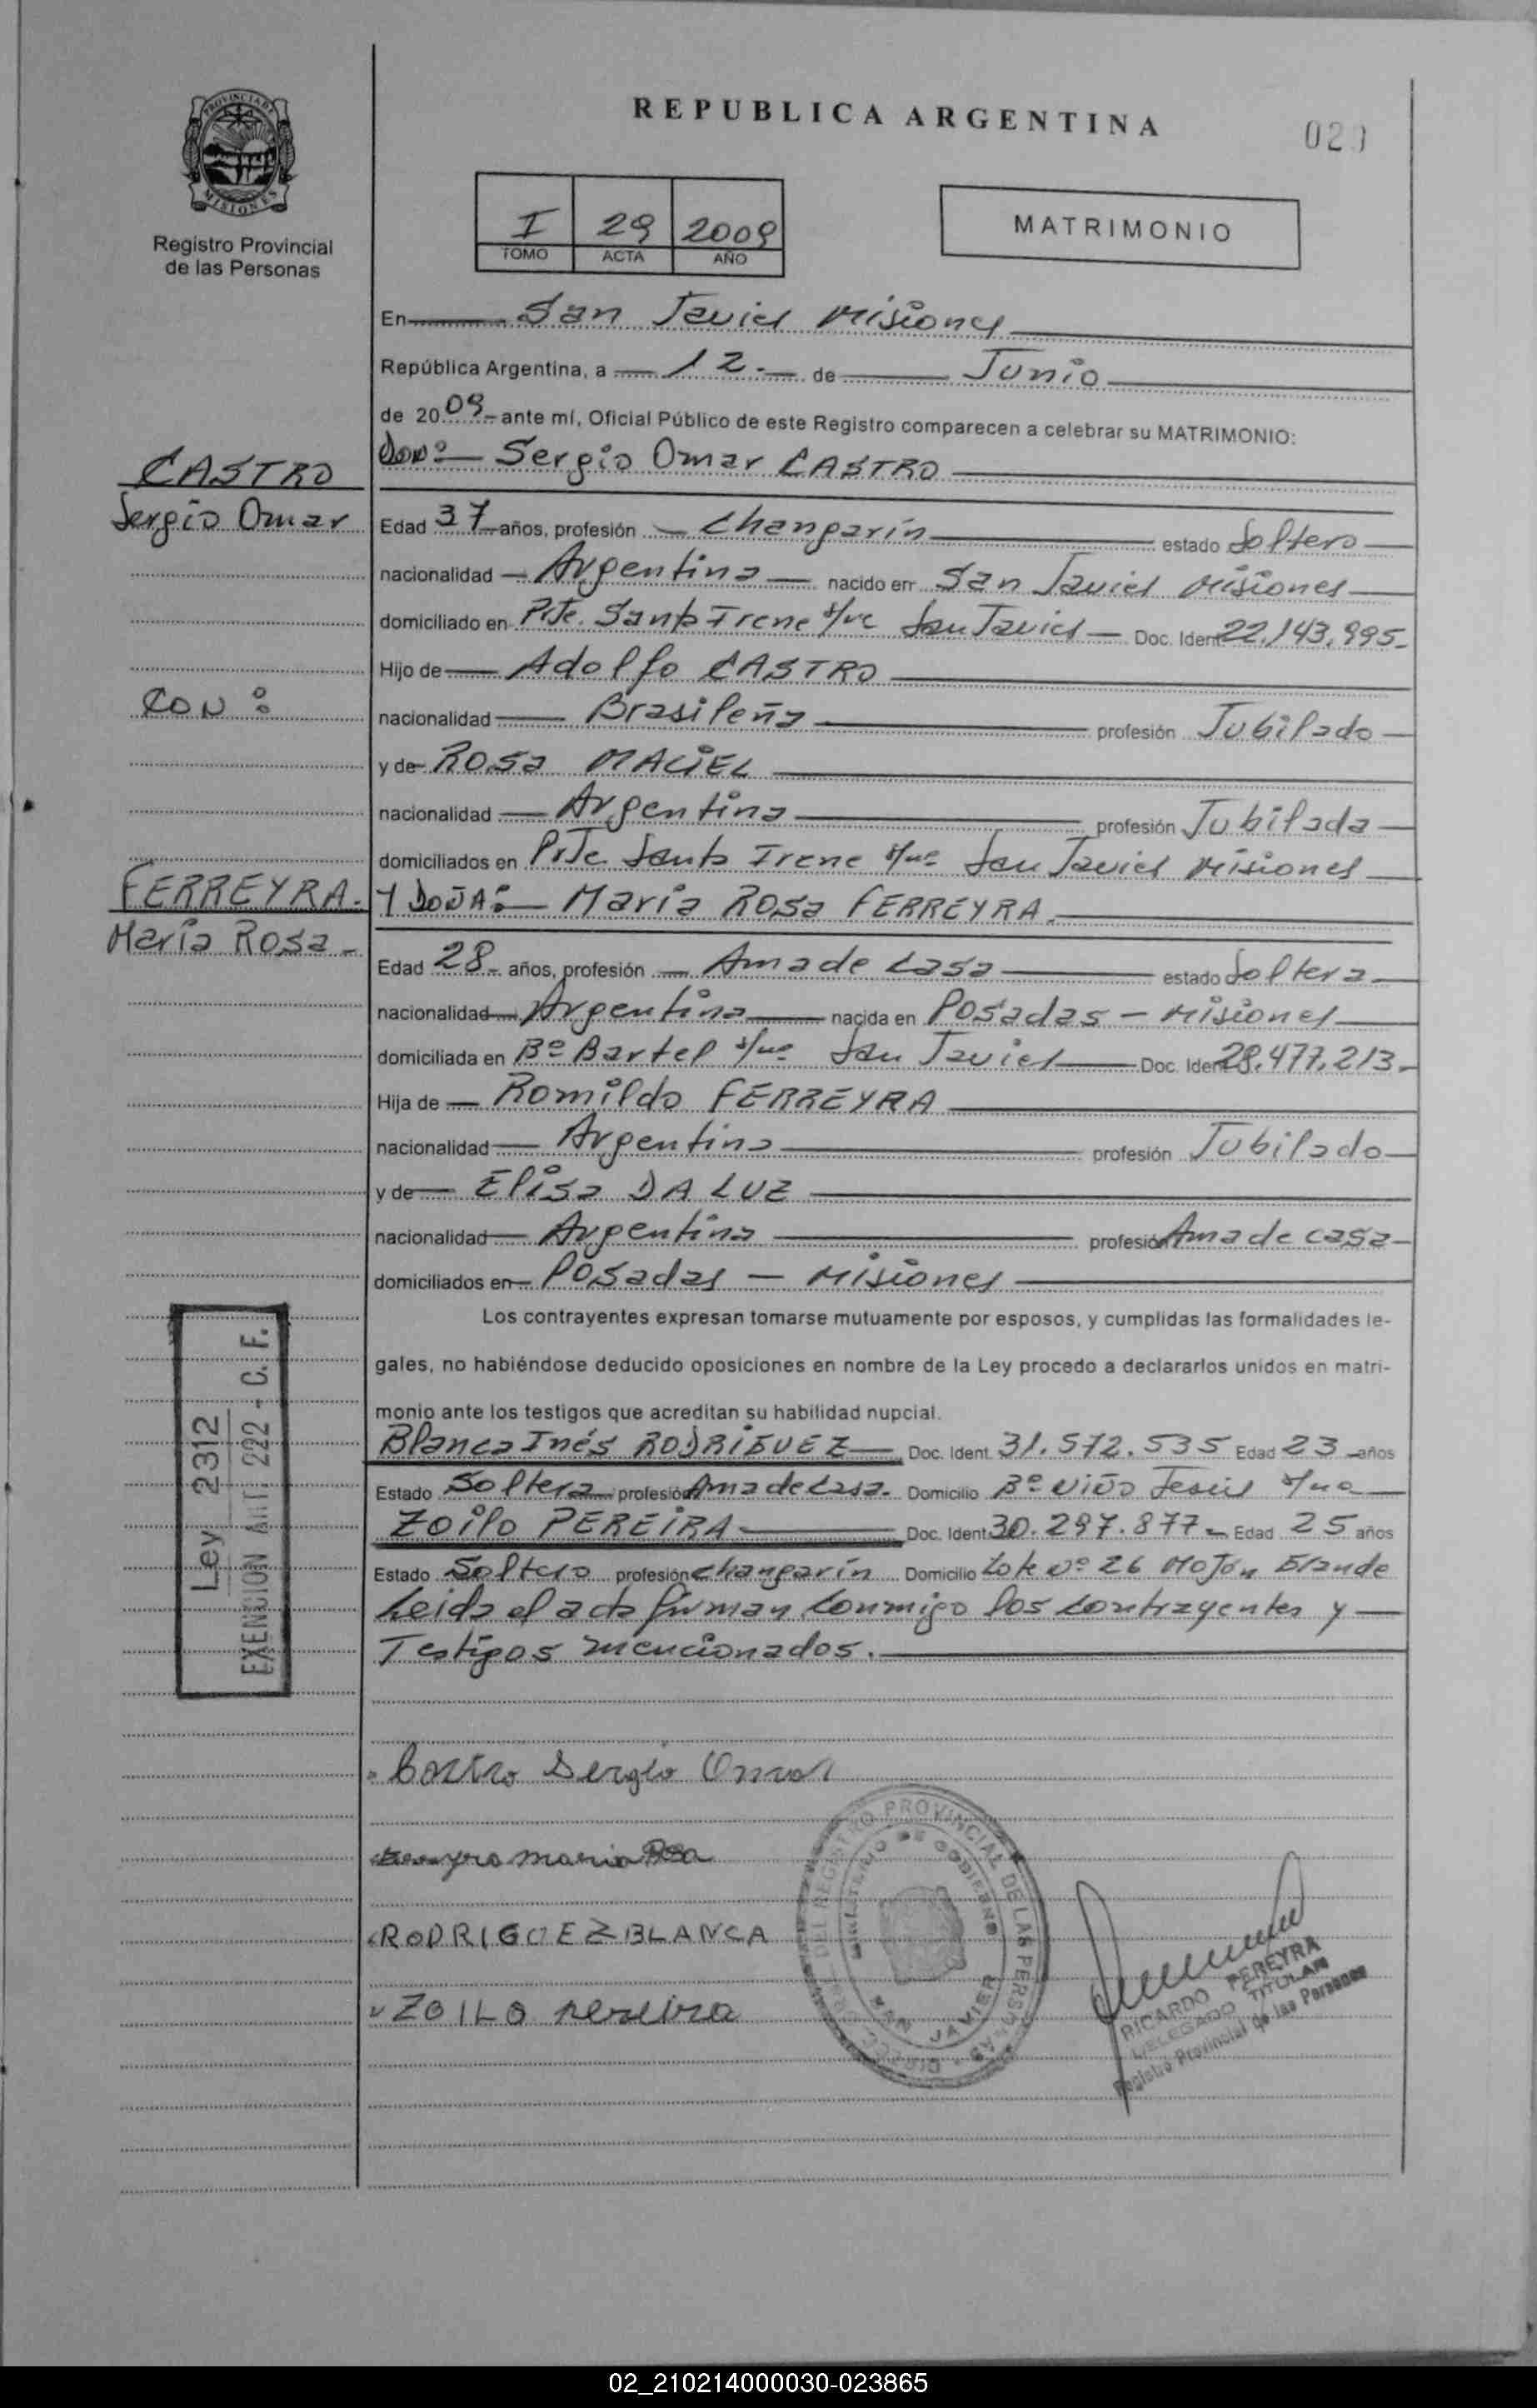 REPUBLICA ARGENTINA
PROVINCIA DE MISIONES
Registro Provincial
de las Personas
I 29 2009
TOMO ACTA AÑO
MATRIMONIO
En San Javier Misiones
República Argentina, a 12.- de Junio
de 2009- ante mí, Oficial Público de este Registro comparecen a celebrar su MATRIMONIO:
CASTRO
Sergio Omar
Don:- Sergio Omar CASTRO
Edad 37 años, profesión Changarín estado Soltero
nacionalidad Argentina nacido en San Javier Misiones
domiciliado en Pje. Santa Irene s/nº San Javier Doc. Ident 22.143.995-
Hijo de Adolfo CASTRO
CON:
nacionalidad Brasileña profesión Jubilado
y de Rosa MACIEL
nacionalidad Argentina profesión Jubilada
domiciliados en Pje Santa Irene s/nº San Javier Misiones
FERREYRA.
María Rosa-
Y DOÑA:- María Rosa FERREYRA.
Edad 28- años, profesión Ama de casa estado Soltera
nacionalidad Argentina nacida en Posadas - Misiones
domiciliada en Bº Bartel s/nº San Javier Doc. Ident 28.477.213.
Hija de Romildo FERREYRA
nacionalidad Argentina profesión Jubilado
y de Elisa DA LUZ
nacionalidad Argentina profesión Ama de casa
domiciliados en Posadas - Misiones
Los contrayentes expresan tomarse mutuamente por esposos, y cumplidas las formalidades le-
gales, no habiéndose deducido oposiciones en nombre de la Ley procedo a declararlos unidos en matri-
monio ante los testigos que acreditan su habilidad nupcial.
Ley 2312
EXENSION Art. 222 - C. F.
Blanca Inés RODRIGUEZ Doc. Ident. 31.572.535 Edad 23 años
Estado Soltera profesión Ama de casa. Domicilio Bº Niño Jesús s/nº
Zoilo PEREIRA Doc. Ident 30.297.877- Edad 25 años
Estado Soltero profesión changarín Domicilio Lote Nº 26 Mojón Grande
Leída el acta firman conmigo los contrayentes y
Testigos mencionados.
Castro Sergio Omar
Ferreyra maria Rosa
RODRIGUEZ BLANCA
ZOILO pereira
REGISTRO PROVINCIAL DE LAS PERSONAS
MINISTERIO DE GOBIERNO
SAN JAVIER
RICARDO PEREYRA
DELEGADO TITULAR
Registro Provincial de las Personas
02_210214000030-023865